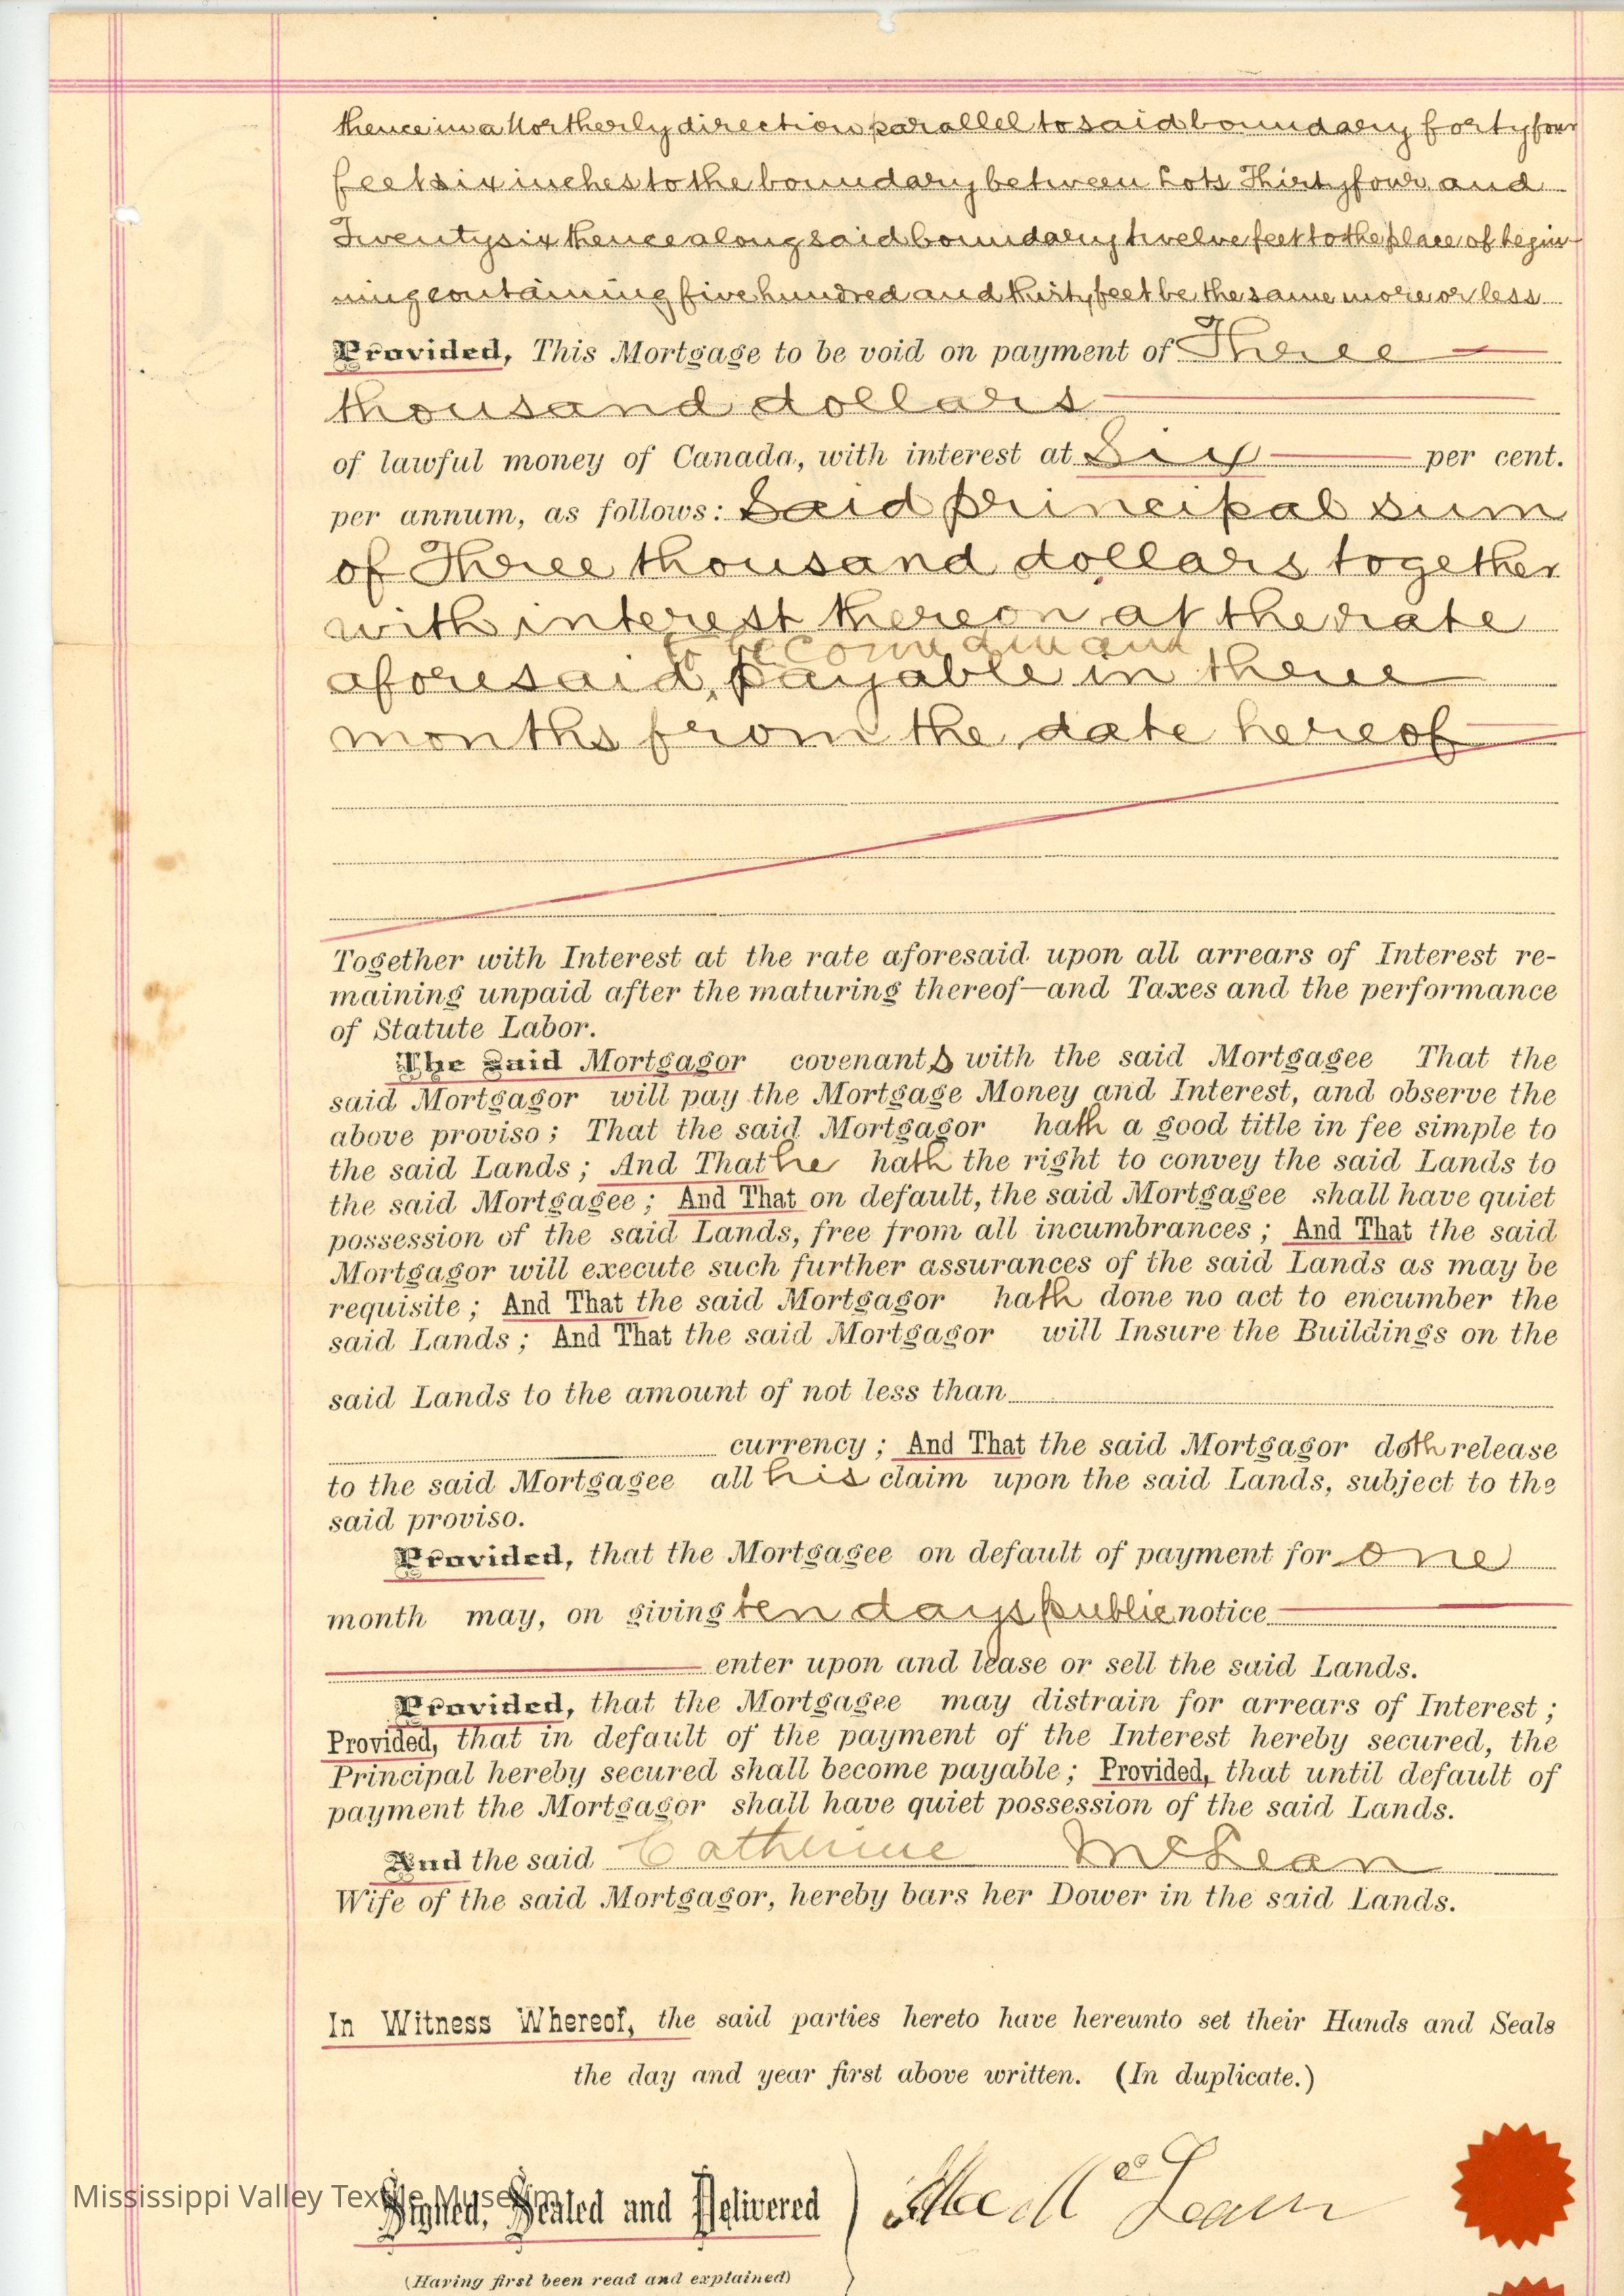 thence in a Northerly direction parallel to said boundary forty four
feet six inches to the boundary between Lots Thirty four and
Twenty six thence along said boundary twelve feet to the place of begin-
ning containing five hundred and thirty feet be the same more or less
Provided, This Mortgage to be void on payment of Three
thousand dollars
of lawful money of Canada, with interest at Six per cent.
per annum, as follows: Said principal sum
of Three thousand dollars together
with interest thereon at the rate
to become due and
aforesaid, payable in three
months from the date hereof
Together with Interest at the rate aforesaid upon all arrears of Interest re-
maining unpaid after the maturing thereof—and Taxes and the performance
of Statute Labor.
The Said Mortgagor covenants with the said Mortgagee That the
said Mortgagor will pay the Mortgage Money and Interest, and observe the
above proviso; That the said Mortgagor hath a good title in fee simple to
the said Lands; And That he hath the right to convey the said Lands to
the said Mortgagee; And That on default, the said Mortgagee shall have quiet
possession of the said Lands, free from all incumbrances; And That the said
Mortgagor will execute such further assurances of the said Lands as may be
requisite; And That the said Mortgagor hath done no act to encumber the
said Lands; And That the said Mortgagor will Insure the Buildings on the
said Lands to the amount of not less than
currency; And That the said Mortgagor doth release
to the said Mortgagee all his claim upon the said Lands, subject to the
said proviso.
Provided, that the Mortgagee on default of payment for one
month may, on giving ten days public notice
enter upon and lease or sell the said Lands.
Provided, that the Mortgagee may distrain for arrears of Interest;
Provided, that in default of the payment of the Interest hereby secured, the
Principal hereby secured shall become payable; Provided, that until default of
payment the Mortgagor shall have quiet possession of the said Lands.
And the said Catherine McLean
Wife of the said Mortgagor, hereby bars her Dower in the said Lands.
In Witness Whereof, the said parties hereto have hereunto set their Hands and Seals
the day and year first above written. (In duplicate.)
Mississippi Valley Textile Museum
Signed, Sealed and Delivered McLean
(Having first been read and explained)